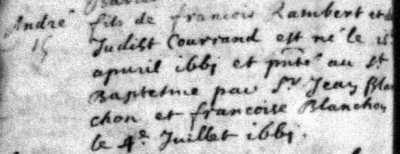 André fils de francois Rambert et de
15 Judist Courrand est né le 15e
apuril 1661 et pnté au st
Baptesme par Sr Jean Blan
chon et francoise Blanchon
le 4e Juillet 1661.